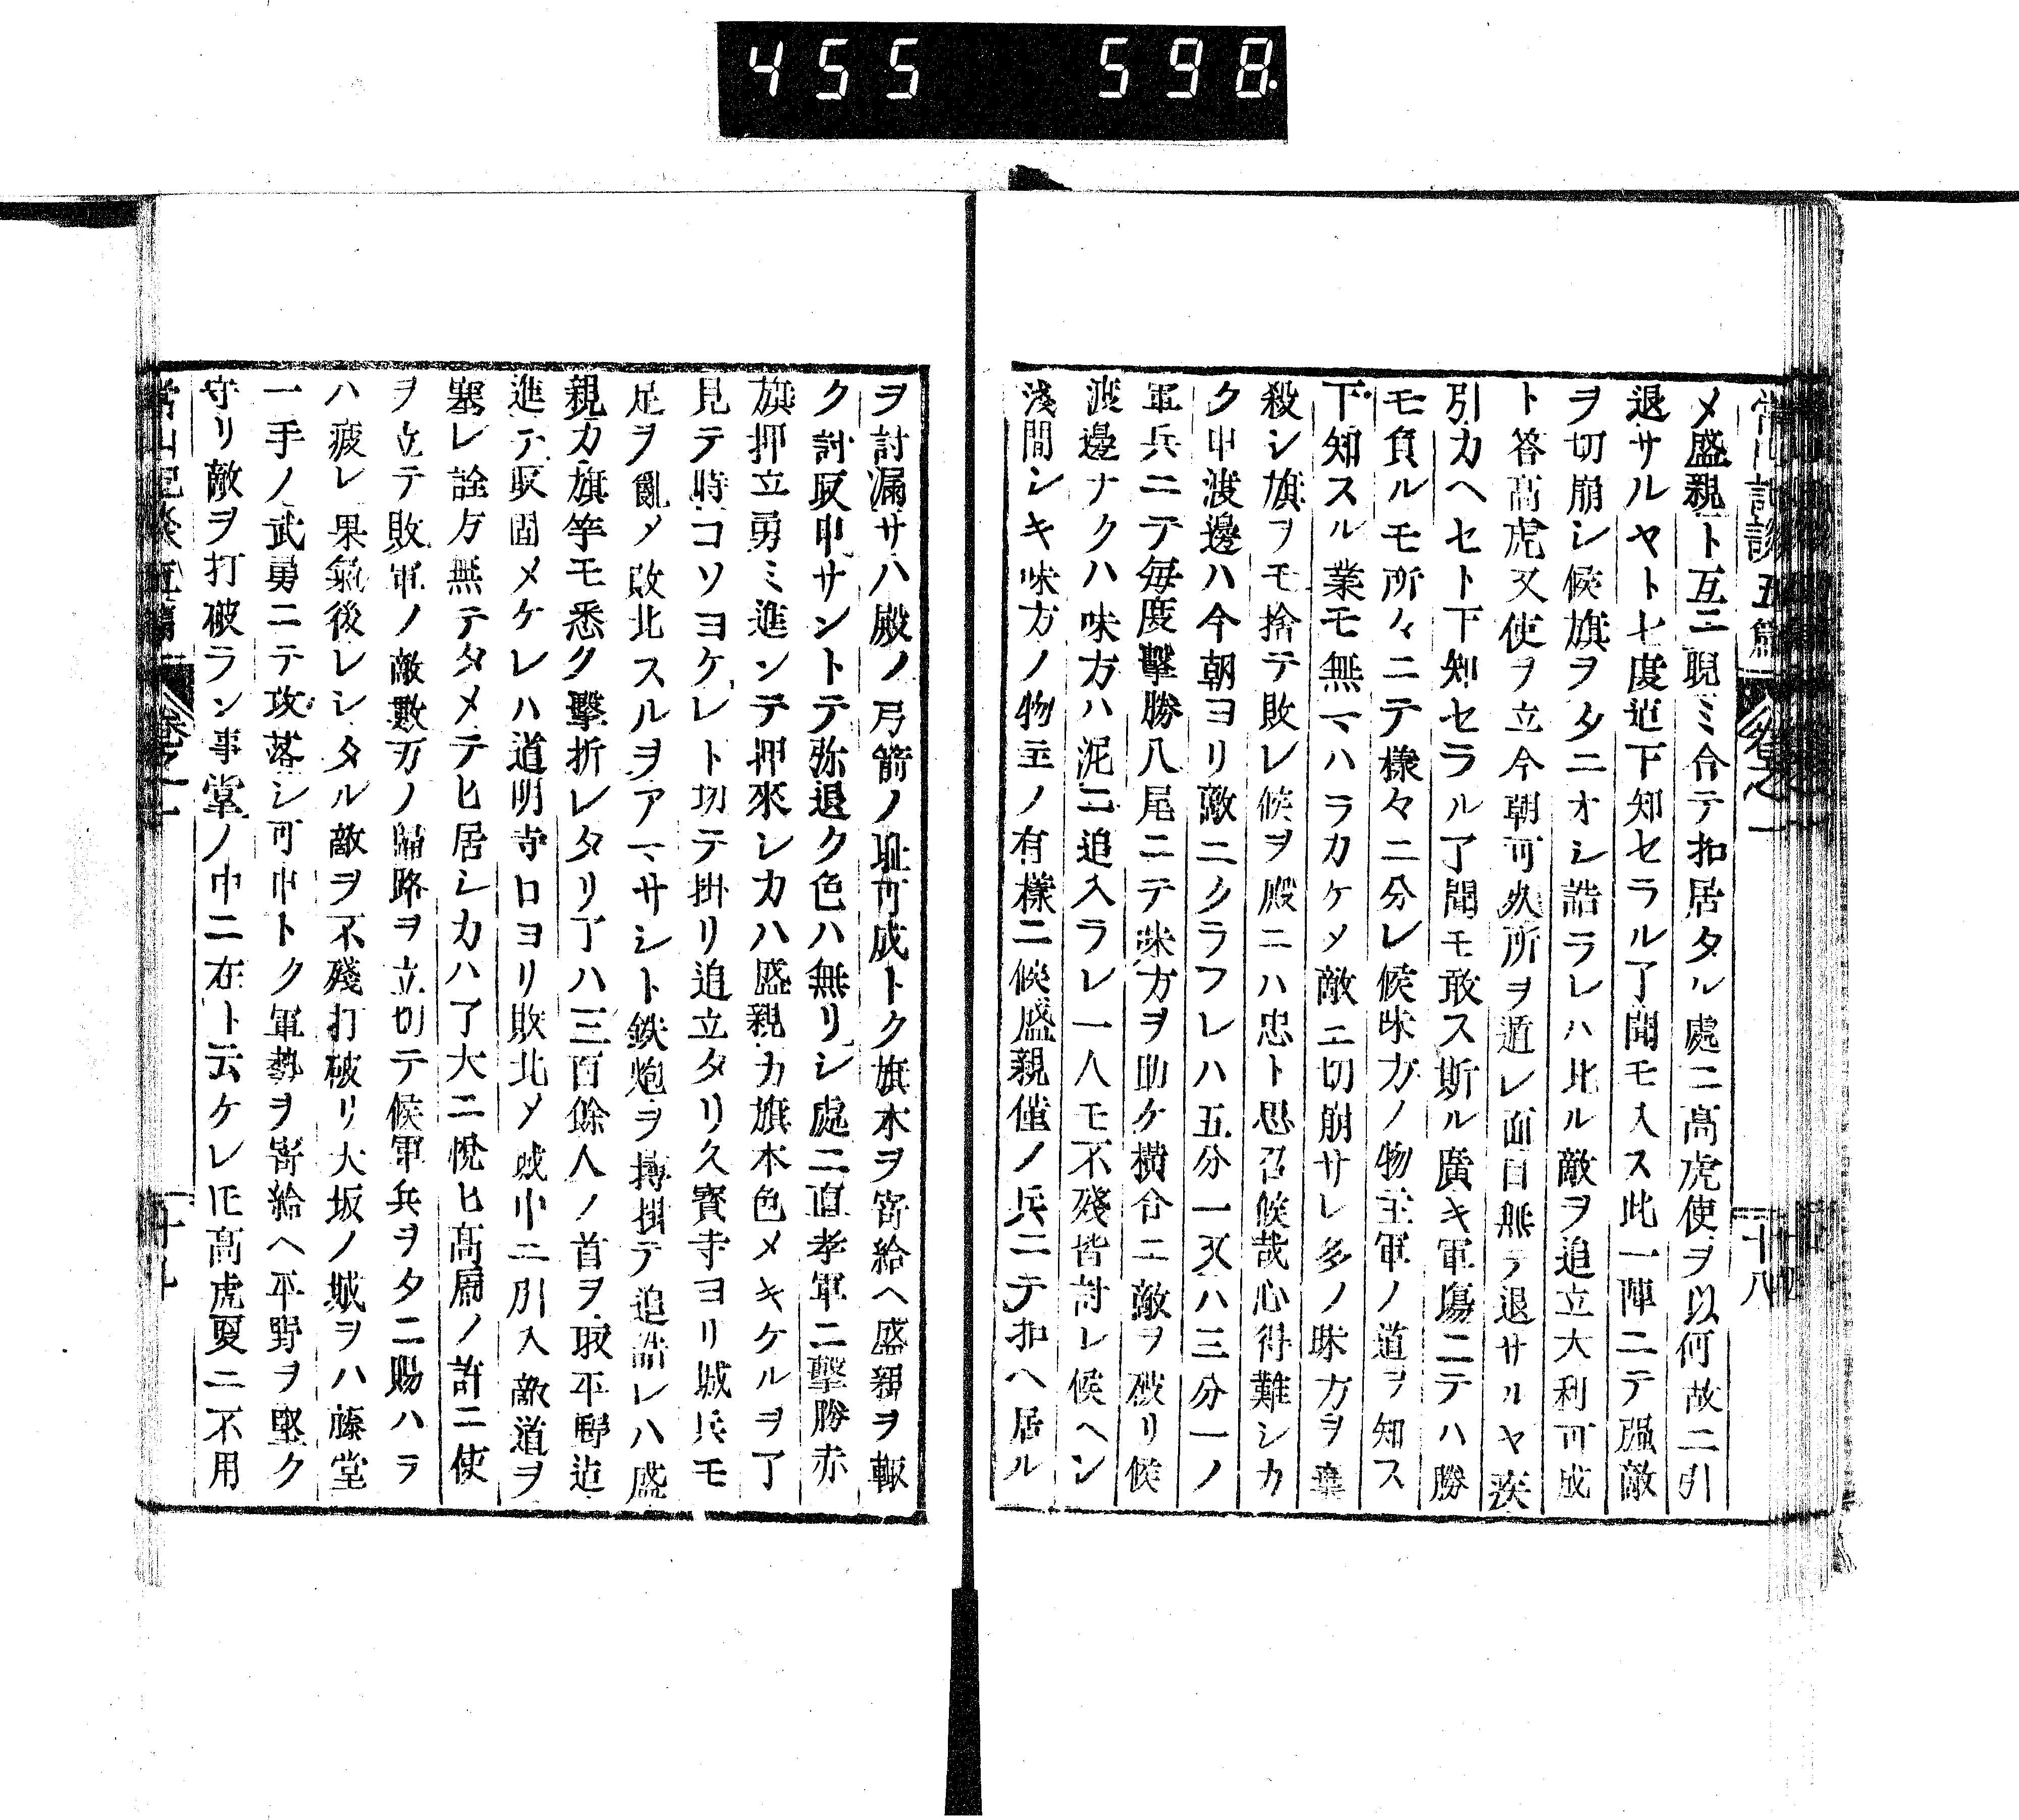 455 598
メ盛親ト互ニ睨ミ合テ扣居タル處ニ高虎使ヲ以何故ニ引
退サルヤト七度迠下知セラル了聞モ入ス此一陣ニテ強敵
ヲ切崩シ候旗ヲタニオシ詰ラレハ北ル敵ヲ追立大利可成
ト答高虎又使ヲ立今朝可死所ヲ遁レ面目無テ退サルヤ疾
引カヘセト下知セラル了聞モ敢ス斯ル廣キ軍塲ニテハ勝
モ負ルモ所々ニテ樣々ニ分レ候味方ノ物主軍ノ道ヲ知ス
下知スル業モ無マハラカケメ敵ニ切崩サレ多ノ味方ヲ棄
殺シ旗ヲモ捨テ敗レ候ヲ殿ニハ忠ト思召候哉心得難シカ
ク申渡邊ハ今朝ヨリ敵ニクラフレハ五分一又ハ三分一ノ
軍兵ニテ毎度擊勝八尾ニテ味方ヲ助ケ横合ニ敵ヲ破リ候
渡邊ナクハ味方ハ泥ニ追入ラレ一人モ不殘皆討レ候ヘン
淺間シキ味方ノ物主ノ有樣ニ候盛親僅ノ兵ニテ扣ヘ居ル
ヲ討漏サハ殿ノ弓箭ノ耻可成トク旗本ヲ寄給ヘ盛親ヲ輙
ク討取申サントテ弥退ク色ハ無リシ處ニ直孝軍ニ擊勝赤
旗押立勇ミ進ンテ押來レカハ盛親カ旗本色メキケルヲ了
見テ時コソヨケレト切テ掛リ追立タリ久寳寺ヨリ城兵モ
足ヲ亂メ敗北スルヲアマサシト鉄炮ヲ搏掛テ追詰レハ盛
親カ旗竿モ悉ク擊折レタリ了ハ三百餘人ノ首ヲ取平野迠
進テ取固メケレハ道明寺口ヨリ敗北メ城中ニ引入敵道ヲ
塞レ詮方無テタメテヒ居シカハ了大ニ悅ヒ高虎ノ許ニ使
ヲ立テ敗軍ノ敵數万ノ歸路ヲ立切テ候軍兵ヲタニ賜ハラ
ハ疲レ果氣後レシタル敵ヲ不殘打破リ大坂ノ城ヲハ藤堂
一手ノ武勇ニテ攻落シ可申トク軍勢ヲ寄給ヘ平野ヲ堅ク
守リ敵ヲ打破ラン事掌ノ中ニ在ト云ケレ𪜈高虎更ニ不用